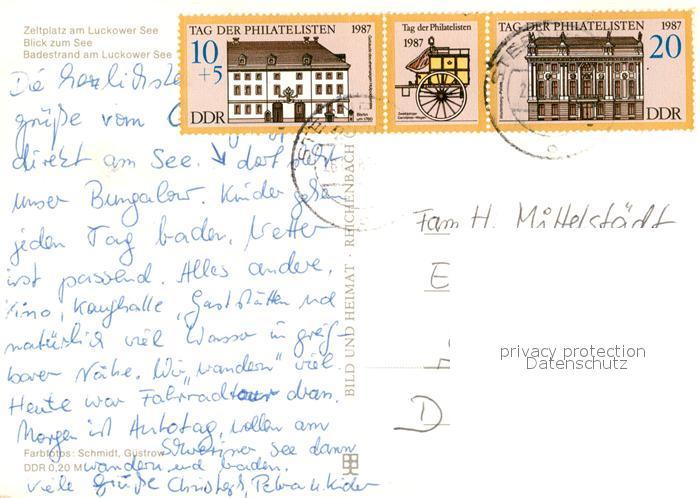 Zeltplatz am Luckower See
Blick zum See
Badestrand am Luckower See
TAG DER PHILATELISTEN 1987
10
+5
DDR
Tag der Philatelisten
1987
TAG DER PHILATELISTEN 1987
20
DDR
Die herzlichsten
grüße vom
direkt am See. dort steht
unser Bungalow. Kinder gehen
jeden Tag baden, Wetter
ist passend. Alles andere,
Kino, Kaufhalle, Gaststätten und
natürlich viel Wasser in greif-
barer Nähe. Wir „wandern" viel.
Heute war Fahrradtour dran.
Morgen ist Autotag, wollen am
Schweriner See dann
wandern und baden.
Viele Grüße Christoph, Petra u. Kinder
Farbfotos: Schmidt, Güstrow
DDR 0,20 M
BILD UND HEIMAT · REICHENBACH
Fam H. Mittelstädt
E
D
privacy protection
Datenschutz